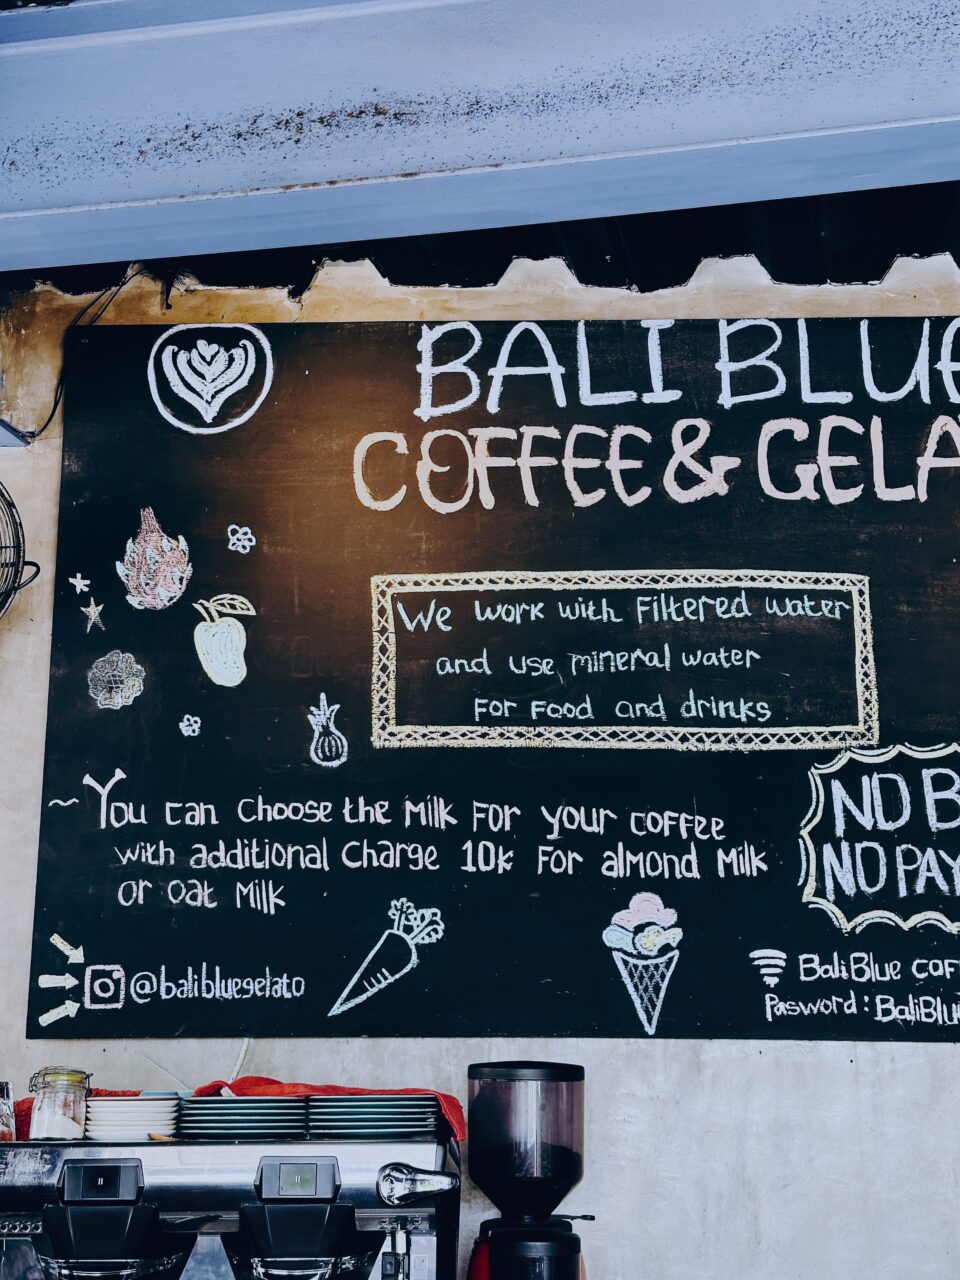 BALI BLUE
COFFEE & GELA
We work with Filtered water
and use mineral water
For Food and drinks
~ You can choose the Milk For your coffee
with additional charge 10k For almond Milk
or oat Milk
NO B
NO PAY
@balibluegelato
BaliBlue COF
Pasword : BaliBlu